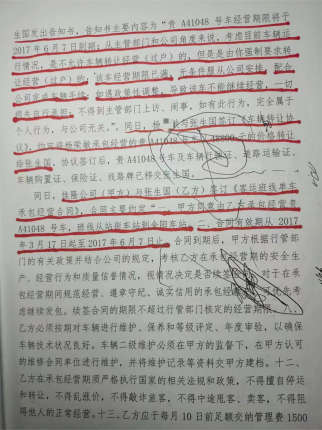 生国发出告知书,告知书主要内容为“贵 A41048 号车经营期限将于
2017 年 6 月 7 日到期,从主管部门和公司角度来说,考虑目前车辆运
行情况,是不允许车辆转让经营(过户)的,但是是由你强制要求转
让经营(过户)的,该车经营期限已满,无条件服从公司安排,配合
公司完成车辆手续;如遇政策性调整,导致该车不能继续经营,一切
损失自行承担;不得到主管部门上访、闹事,如有此行为,完全属于
个人行为,与公司无关。”,同日,
与张生国签订《车辆转让协
议》,约定将杨荣敏承包经营的贵 A41048 号车以 48800 元的价格转让
给张生国,协议签订后,贵 A41048 号车及车辆行驶证、道路运输证、
车辆购置证、保险证、线路牌已移交张生国。
同日,桂隆公司(甲方)与张生国(乙方)签订《客运班线单车
承包经营合同》,合同主要约定“一、甲方同意由乙方承包经营贵
A41048 号车,班线从站街车站到金阳车站。二、合同有效期从 2017
年 3 月 17 日起至 2017 年 6 月 7 日止。合同到期后,甲方根据行管部
门的有关政策并结合公司的规定,考核乙方在承包经营期的安全生
产、经营行为和质量信誉情况,视情况决定是否续签
对于在承
包经营期间规范经营、遵章守纪、诚实信用的承包经
优先考
虑继续发包,续签合同的期限不超过行管部门核定的经营期限。
乙方必须按期对车辆进行维护、保养和等级评定、年度审验,以确保
车辆技术状况良好。车辆二级维护必须在甲方的监督下,在甲方认可
的维修合同单位进行维护,并将维护记录等资料交甲方建档。十二、
乙方在承包经营期须严格执行国家的相关法规和政策,不得擅自停运
和转让,不得乱涨价,不得敲诈旅客、不得中途甩客、卖客,不得阻
碍他人的正常经营。十三、乙方应于每月 10 日前足额交纳管理费 1500